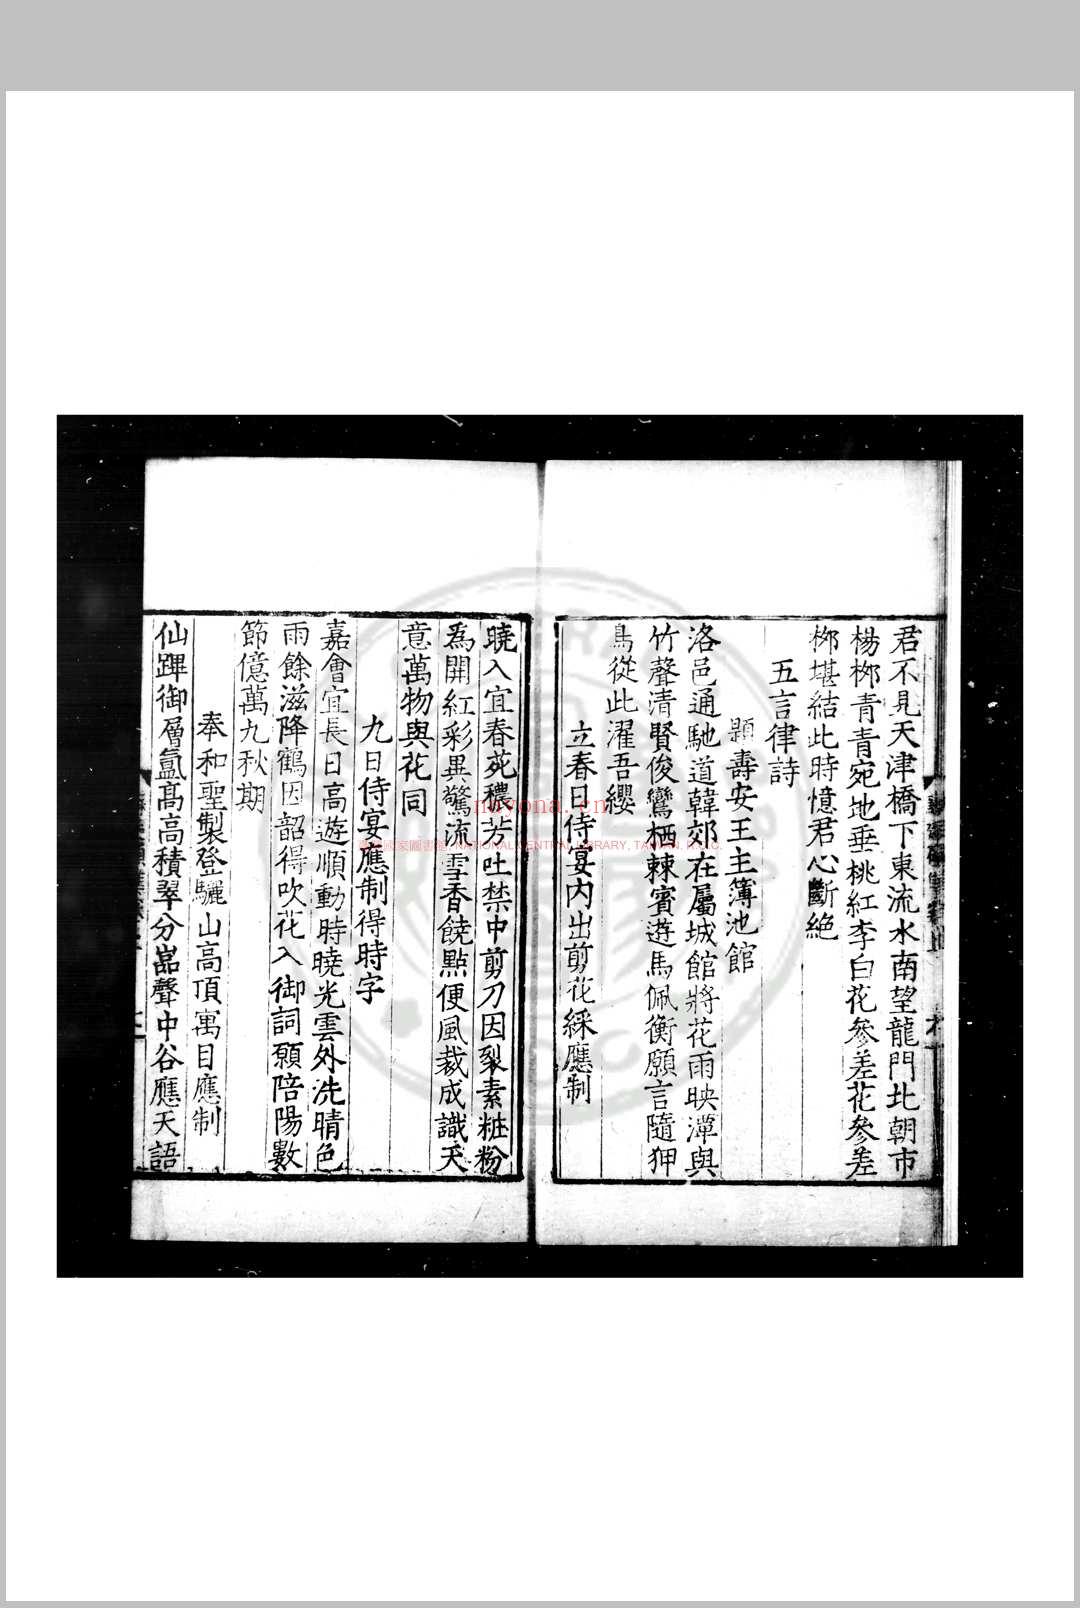 君不見天津橋下東流水南望龍門北朝市
楊桞青青宛地垂桃紅李白花參差花參差
桞堪結此時憶君心斷絶
五言律詩
題壽安王主簿池館
洛邑通馳道韓郊在屬城館將花雨映潭與
竹聲清賢俊鸞栖棘賓遊馬佩衡願言隨狎
鳥從此濯吾纓
立春日侍宴内出剪花綵應制
曉入宜春苑穠芳吐禁中剪刀因裂素粧粉
爲開紅彩異驚流雪香饒點便風裁成識天
意萬物與花同
九日侍宴應制得時字
嘉會宜長日高遊順動時曉光雲外洗晴色
雨餘滋降鶴因韶得吹花入御詞願陪陽數
節億萬九秋期
奉和聖製登驪山高頂寓目應制
仙蹕御層氳高高積翠分嵓聲中谷應天語
nayona.cn
NATIONAL CENTRAL LIBRARY, TAIWAN, R.O.C.